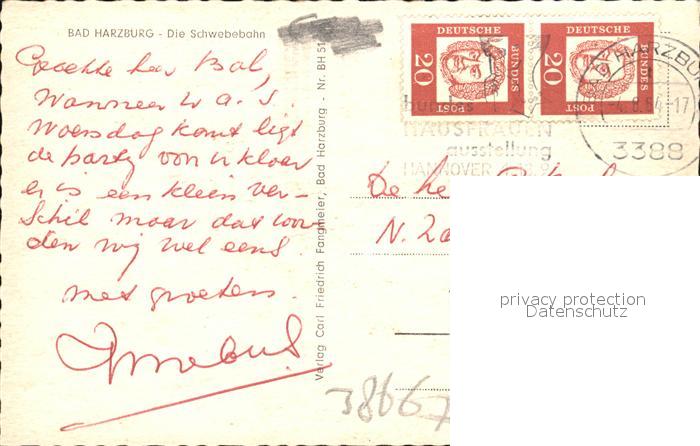 BAD HARZBURG - Die Schwebebahn
Geachte heer Bal,
Wanneer U a. s.
Woensdag komt ligt
de party voor U klaar
er is een klein ver-
schil maar dat wor-
den wij wel eens.
Met groeten.
Verlag Carl Friedrich Fangmeier, Bad Harzburg - Nr. BH 51
DEUTSCHE
BUNDES
POST
20
DEUTSCHE
BUNDES
POST
20
HARZBU
-4.8.64-17
3388
bundes
HAUSFRAUEN
ausstellung
HANNOVER
De he
N. Za
privacy protection
Datenschutz
38667